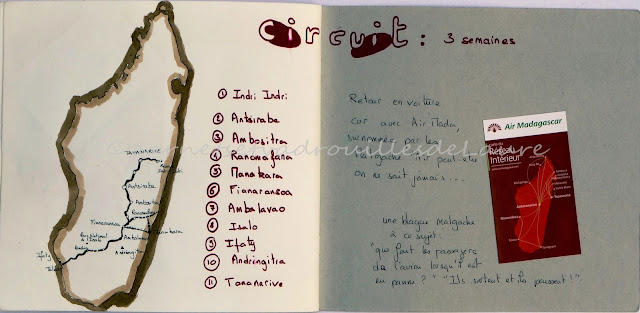 circuit : 3 semaines
TANANARIVE
Antsirabe
Fianarantsoa
Parc National
de l'Isalo
Andringitra
Ifaty
① Indri Indri
② Antsirabe
③ Ambositra
④ Ranomafana
⑤ Manakara
⑥ Fianaransoa
⑦ Ambalavao
⑧ Isalo
⑨ Ifaty
⑩ Andringitra
⑪ Tananarive
Retour en voiture
car avec Air Mada,
surnommée par les
malgache Air peut-être
on ne sait jamais...
une blague malgache
à ce sujet:
"que font les passagers
de l'avion lorsqu'il est
en panne?" "Ils sortent et ils poussent!".
Air Madagascar
Réseau
Intérieur